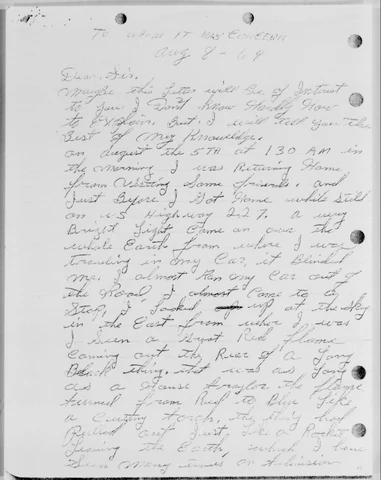 To whom it may concern
Aug 8-69
Dear Sir.
Maybe this Letter will be of Intrest
to you I Don't know Hardly How
to Explain. But. I will tell you the
Best of my Knowledge.
on august the 5TH at 1:30 AM in
the morning I was Returning Home
from Visiting Some friends. and
Just Before I Got Home while Still
on US Highway 227. a very
Bright Light Came on over the
whole Earth from where I was
traveling in my Car, it Blinded
me. I almost Ran my Car out of
the Road, I almost Come to a
Stop, I Looked up at the Sky
in the East from wher I was
I Seen a Great Red flame
Coming out the Rear of a Long
Black thing, that was as Long
as a House traylor the flame
turned from Red to Blue Like
a Cutting torch. the thing had
out Just Like a Rocket
Leaving the Earth, which I have
Seen many times on